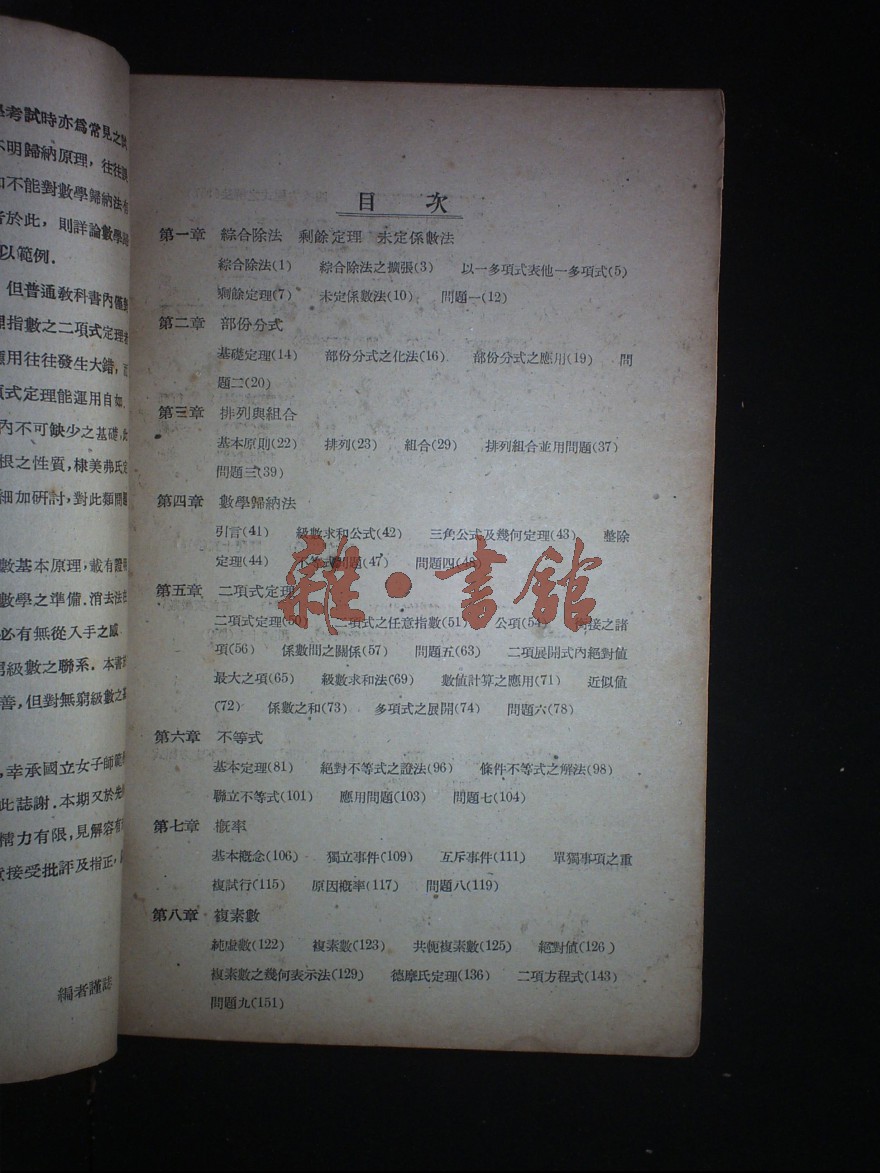 學考試時亦爲常見之
不明歸納原理，往往
如不能對數學歸納法
者於此，則詳論數學
以範例．
但普通敎科書內僅
理指數之二項式定理
應用往往發生大錯，
項式定理能運用自如．
內不可缺少之基礎，
根之性質，棣美弗氏
細加硏討，對此類問題
數基本原理，載有證
數學之準備．消去法
必有無從入手之感．
窮級數之聯系．本書
善，但對無窮級數之
，幸承國立女子師範
此誌謝．本期又於
精力有限，見解容有
意接受批評及指正，
編者謹誌
目 次
第一章 綜合除法 剩餘定理 未定係數法
綜合除法(1) 綜合除法之擴張(3) 以一多項式表他一多項式(5)
剩餘定理(7) 未定係數法(10) 問題一(12)
第二章 部份分式
基礎定理(14) 部份分式之化法(16) 部份分式之應用(19) 問
題二(20)
第三章 排列與組合
基本原則(22) 排列(23) 組合(29) 排列組合並用問題(37)
問題三(39)
第四章 數學歸納法
引言(41) 級數求和公式(42) 三角公式及幾何定理(43) 整除
定理(44) 不等式問題(47) 問題四(48)
第五章 二項式定理
二項式定理(50) 二項式之任意指數(51) 公項(54) 銜接之諸
項(56) 係數間之關係(57) 問題五(63) 二項展開式內絕對値
最大之項(65) 級數求和法(69) 數値計算之應用(71) 近似値
(72) 係數之和(73) 多項式之展開(74) 問題六(78)
第六章 不等式
基本定理(81) 絕對不等式之證法(96) 條件不等式之解法(98)
聯立不等式(101) 應用問題(103) 問題七(104)
第七章 槪率
基本槪念(106) 獨立事件(109) 互斥事件(111) 單獨事項之重
複試行(115) 原因槪率(117) 問題八(119)
第八章 複素數
純虛數(122) 複素數(123) 共軛複素數(125) 絕對値(126)
複素數之幾何表示法(129) 德摩氏定理(136) 二項方程式(143)
問題九(151)
雜·書館